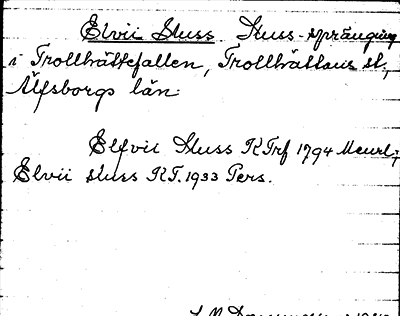 Elvii Sluss Sluss-sprängning
i Trollhättefallen, Trollhättans st.,
Älfsborgs län
Elfvii Sluss KTrf 1794 Meurl;
Elvii sluss KT. 1933 Pers.